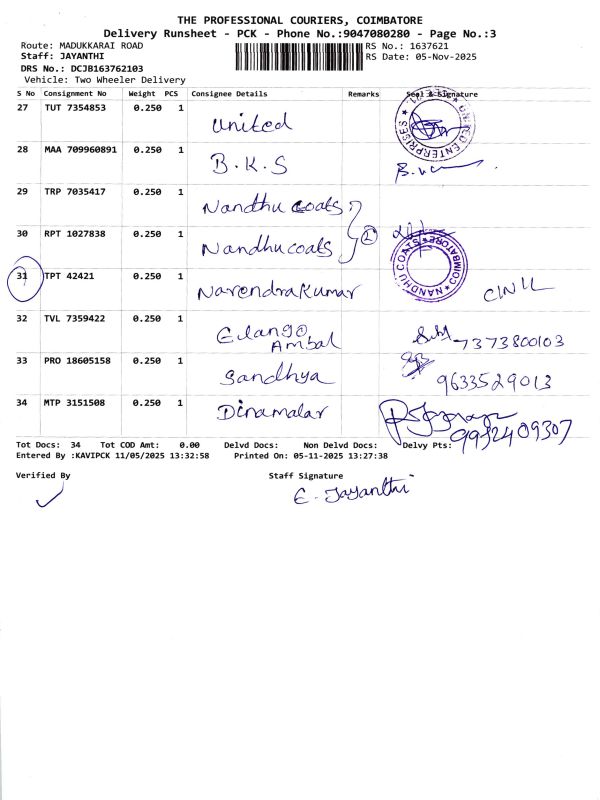 THE PROFESSIONAL COURIERS, COIMBATORE
Delivery Runsheet - PCK - Phone No.:9047080280 - Page No.:3
Route: MADUKKARAI ROAD RS No.: 1637621
Staff: JAYANTHI RS Date: 05-Nov-2025
DRS No.: DCJB163762103
Vehicle: Two Wheeler Delivery
S No Consignment No Weight PCS Consignee Details Remarks Seal & Signature
27 TUT 7354853 0.250 1 United
UNITED ENTERPRISES
28 MAA 709960891 0.250 1 B.K.S
29 TRP 7035417 0.250 1 Nandhu coats
30 RPT 1027838 0.250 1 Nandhu coats 2
NANDHU COATS COIMBATORE
31 TPT 42421 0.250 1 Narendrakumar
32 TVL 7359422 0.250 1 Elango Ambal 7373800103
33 PRO 18605158 0.250 1 Sandhya 9633529013
34 MTP 3151508 0.250 1 Dinamalar 9952409307
Tot Docs: 34 Tot COD Amt: 0.00 Delvd Docs: Non Delvd Docs: Delvy Pts:
Entered By :KAVIPCK 11/05/2025 13:32:58 Printed On: 05-11-2025 13:27:38
Verified By Staff Signature
E. Jayanthi